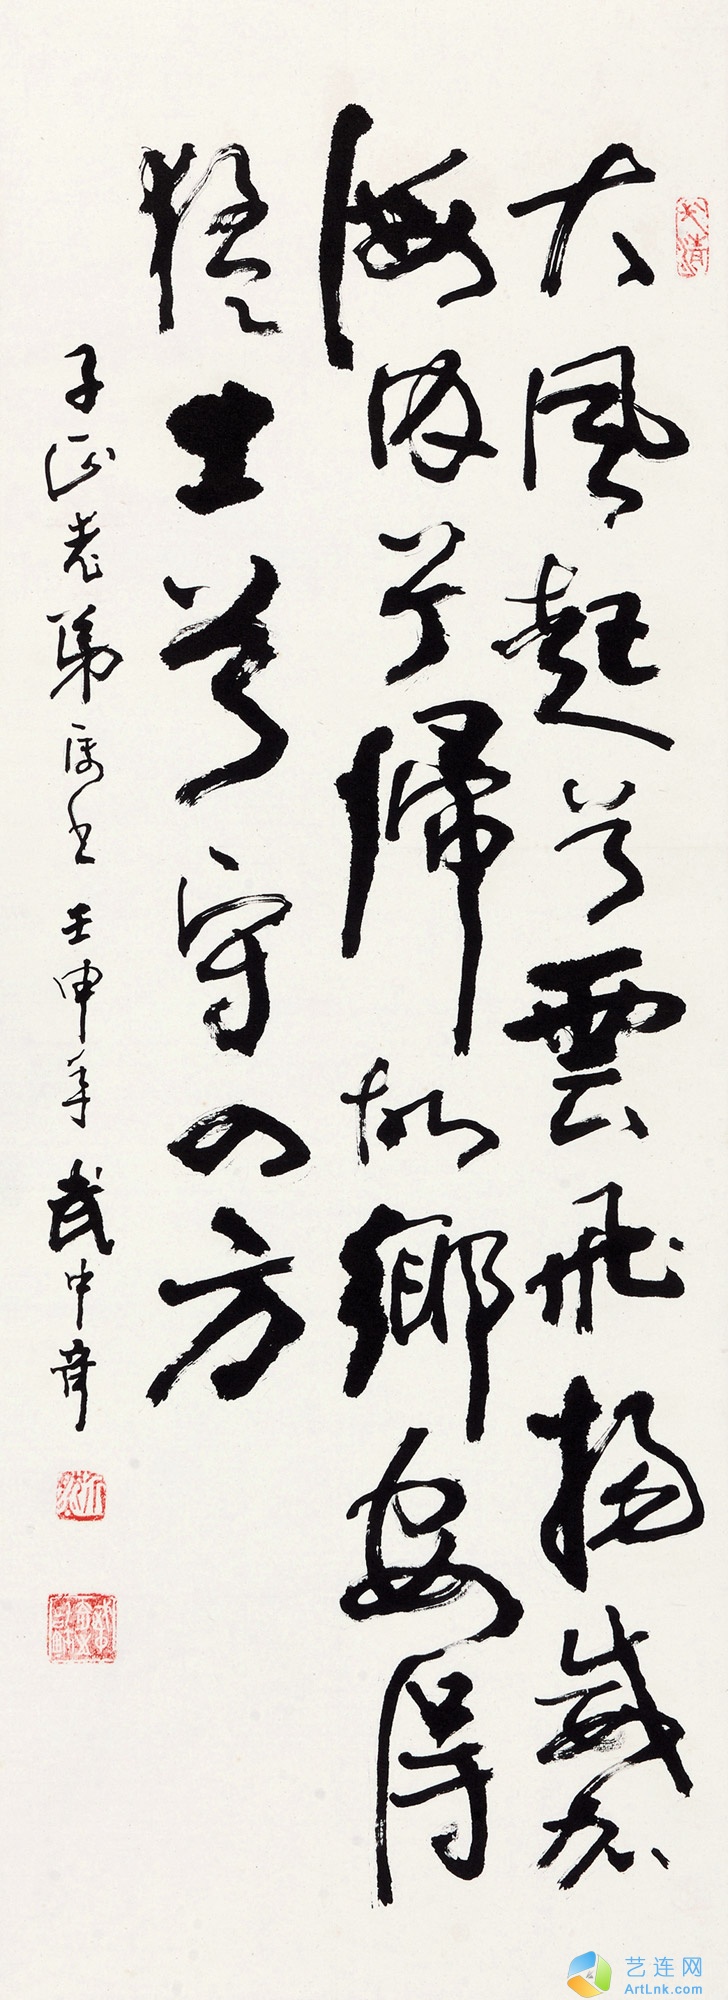 大風起兮雲飛揚威加
海内兮歸故鄉安得
猛士兮守四方
子正老弟属书 壬申年 武中奇
艺连网
ArtLnk.com